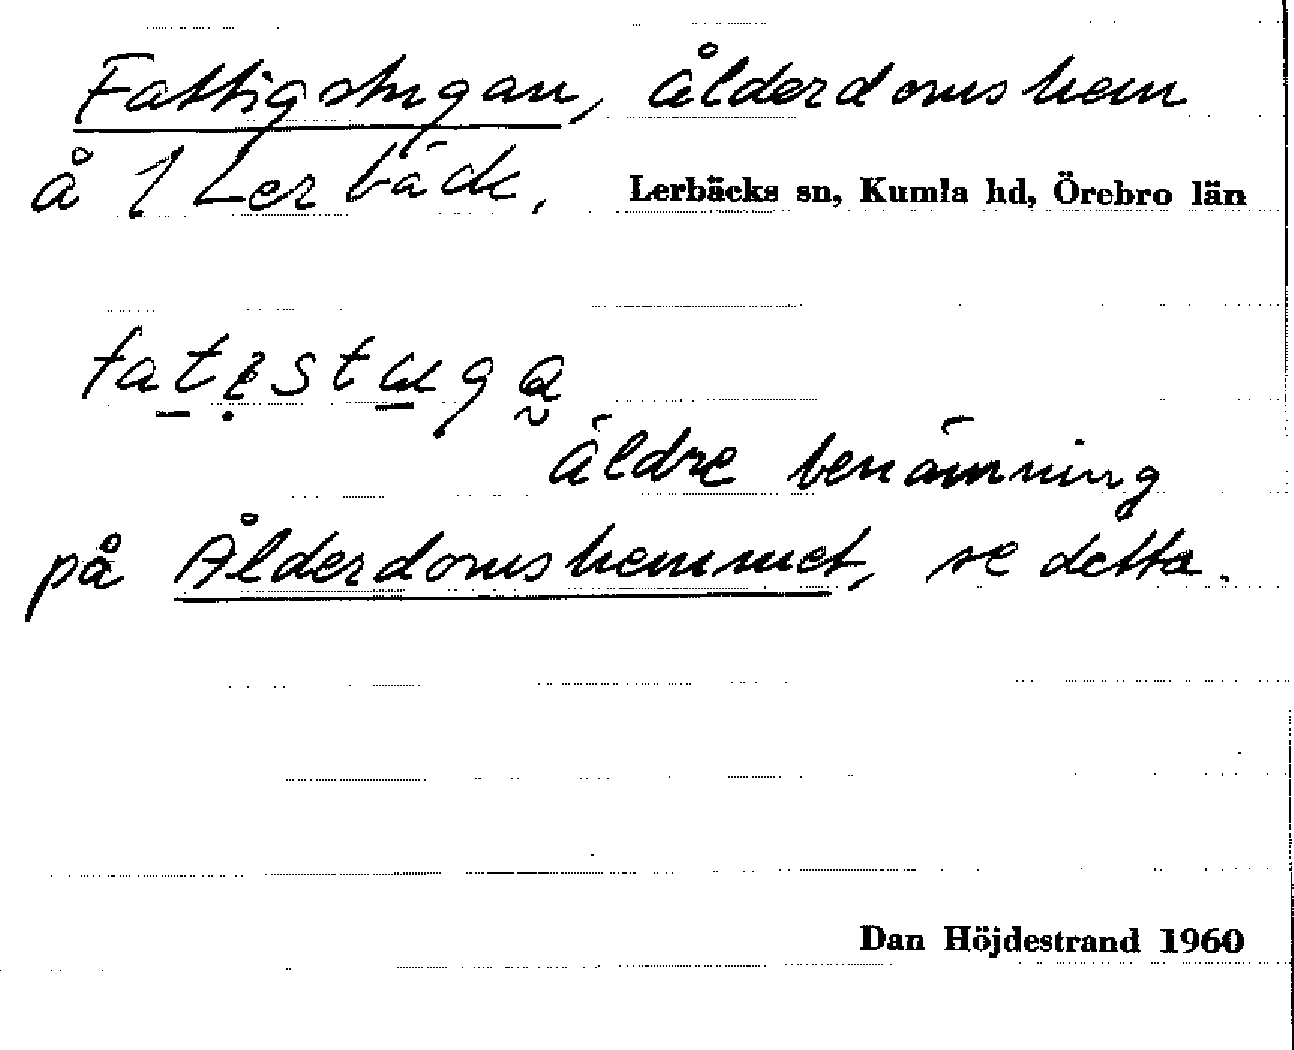 Fattigstugan, ålderdomshem
å 1 Lerbäck, Lerbäcks sn, Kumla hd, Örebro län
fatıstuga
äldre benämning
på Ålderdomshemmet, se detta.
Dan Höjdestrand 1960